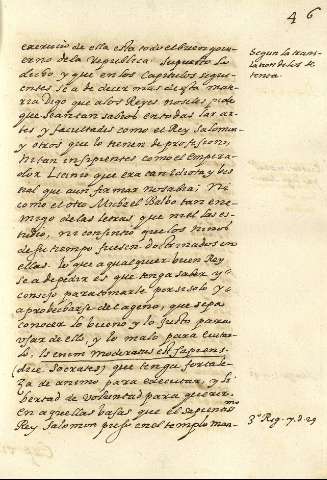 46
exercicio de ella esta todo el buen gouier
erno de la Republica. supuesto lo
dicho, y que en los Capitulos seguie
entes se a de decir mas de esta mate
ria digo que a los Reyes no se les pide
que sean tan sabios en todas las ar
tes y facultades como el Rey Salomon
y otros que lo tienen de profession;
ni tan insipientes como el Empera
dor Licinio que era tan Idiota, y bes
tial que aun firmar no sabia; Ni
como el otro Michael Balbo tan ene
migo de las letras que ni el las es
tudio, ni consintio que los niños
de su tiempo fuesen doctrinados en
ellas. lo que a qualquier buen Rey
se a de pedir es que tenga saber, y
consejo para tomarle por si solo y
aprobecharse del ageno, que sepa
conocer lo bueno y lo justo para
usar de ello, y lo malo para euitar
lo. is enim moderatus est sapiens
(dice Socrates) que tenga fortale
za de animo para executar, y li
bertad de voluntad para querer.
En aquellas basas que el sapientissmo
Rey Salomon puso en el templo man
Segun la trans
lacion de los se
tenta.
3º Reg. 7. v. 29